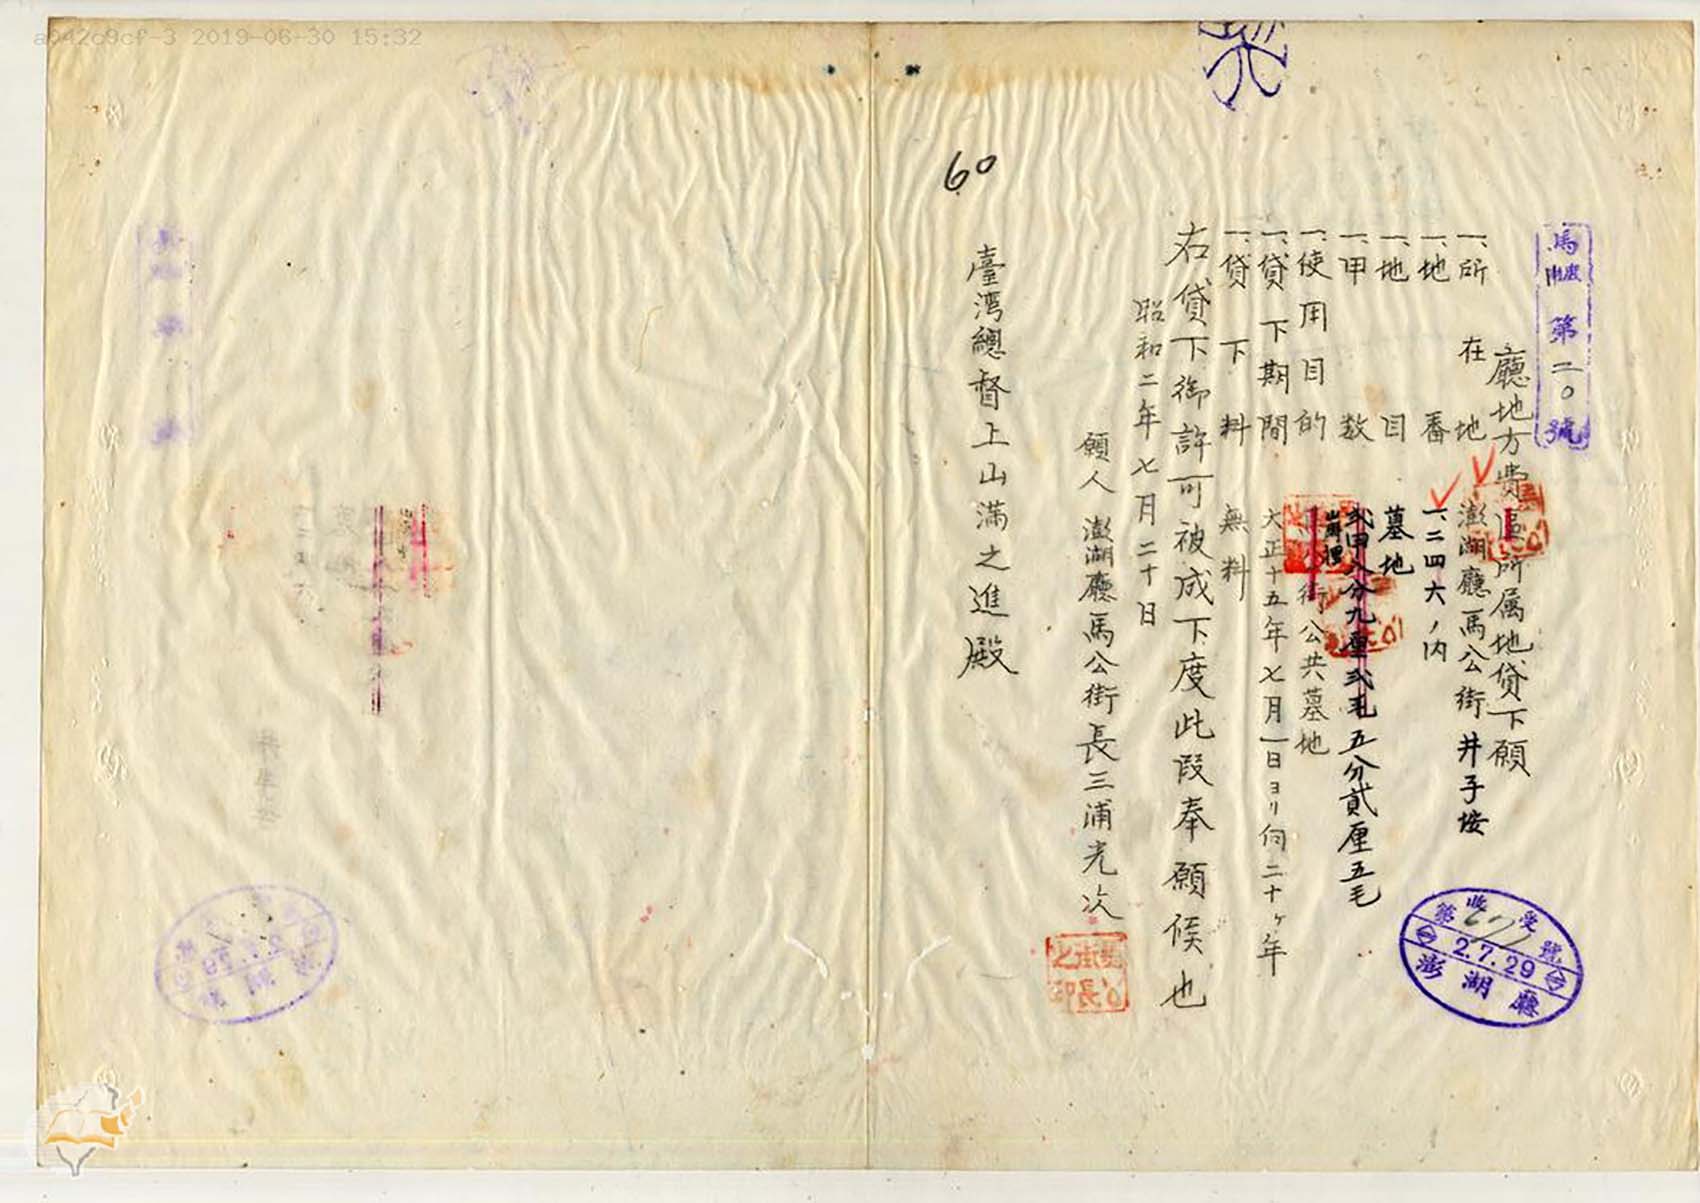 a042c9cf-3 2019-06-30 15:32
馬 第二〇號
廳地方費區所属地貸下願
一、所在地 澎湖廳馬公街井子垵
一、地番 一、二四六ノ内
一、地目 墓地
一、甲数 弍甲八分九厘弍毛 五分貳厘五毛
一、使用目的 街公共墓地
一、貸下期間 大正十五年七月一日ヨリ向二十ヶ年
一、貸下料 無料
右貸下御許可被成下度此段奉願候也
昭和二年七月二十日
願人 澎湖廳馬公街長三浦光次
臺湾總督上山満之進殿
60
收受
第 號
2.7.29
澎湖廳